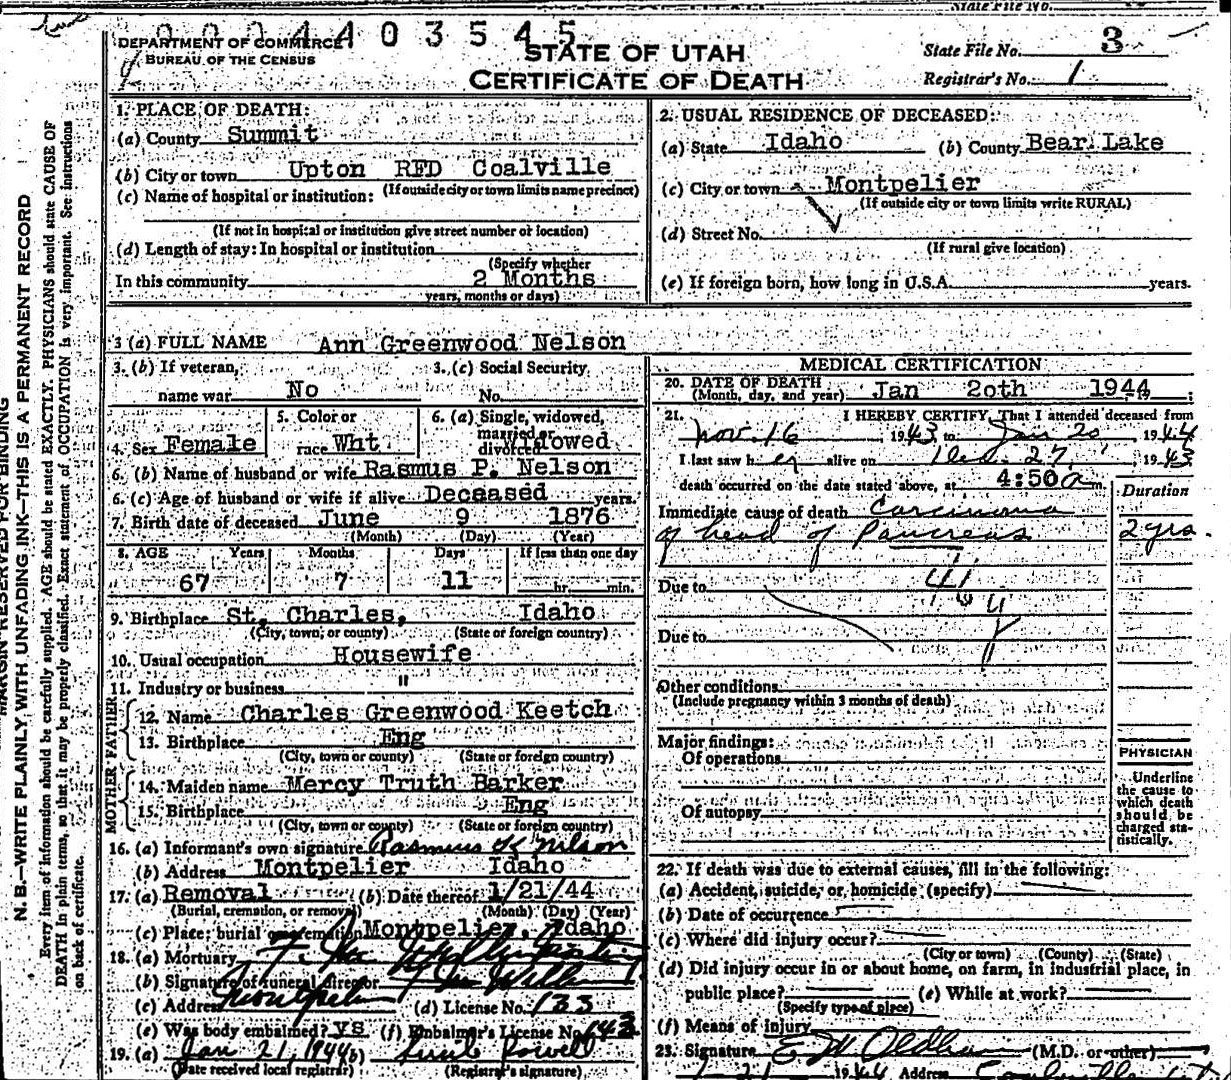 State File No.
0 0 0 4 4 0 3 5 4 5
DEPARTMENT OF COMMERCE
BUREAU OF THE CENSUS
STATE OF UTAH
CERTIFICATE OF DEATH
State File No. 3
Registrar's No. 1
MARGIN RESERVED FOR BINDING
N. B.—WRITE PLAINLY WITH UNFADING INK—THIS IS A PERMANENT RECORD
Every item of information should be carefully supplied. AGE should be stated EXACTLY. PHYSICIANS should state CAUSE OF
DEATH in plain terms, so that it may be properly classified. Exact statement of OCCUPATION is very important. See instructions
on back of certificate.
1. PLACE OF DEATH:
(a) County Summit
(b) City or town Upton RFD Coalville
(If outside city or town limits name precinct)
(c) Name of hospital or institution:
(If not in hospital or institution give street number or location)
(d) Length of stay: In hospital or institution
(Specify whether
In this community 2 Months
years, months or days)
2. USUAL RESIDENCE OF DECEASED:
(a) State Idaho (b) County Bear Lake
(c) City or town Montpelier
(If outside city or town limits write RURAL)
(d) Street No.
(If rural give location)
(e) If foreign born, how long in U.S.A. years.
3 (a) FULL NAME Ann Greenwood Nelson
3. (b) If veteran, 3. (c) Social Security
name war No No.
4. Sex Female 5. Color or race Wht 6. (a) Single, widowed, married or divorced Widowed
6. (b) Name of husband or wife Rasmus P. Nelson
6. (c) Age of husband or wife if alive Deceased years.
7. Birth date of deceased June 9 1876
(Month) (Day) (Year)
8. AGE Years Months Days If less than one day
67 7 11 hr. min.
9. Birthplace St. Charles, Idaho
(City, town, or county) (State or foreign country)
10. Usual occupation Housewife
11. Industry or business "
FATHER
12. Name Charles Greenwood Keetch
13. Birthplace Eng
(City, town or county) (State or foreign country)
MOTHER
14. Maiden name Mercy Truth Barker
15. Birthplace Eng
(City, town or county) (State or foreign country)
16. (a) Informant's own signature Rasmus K Nilson
(b) Address Montpelier Idaho
17. (a) Removal (b) Date thereof 1/21/44
(Burial, cremation, or removal) (Month) (Day) (Year)
(c) Place: burial or cremation Montpelier, Idaho
18. (a) Mortuary
(b) Signature of funeral director
(c) Address Montpelier (d) License No. 133
(e) Was body embalmed? ys (f) Embalmer's License No. 143
19. (a) Jan 21, 1944 (b) Powell
(Date received local registrar) (Registrar's signature)
MEDICAL CERTIFICATION
20. DATE OF DEATH
(Month, day, and year) Jan 20th 1944
21. I HEREBY CERTIFY, That I attended deceased from
Nov. 16 1943 to Jan 20, 1944
I last saw her alive on Dec. 27, 1943
death occurred on the date stated above, at 4:50 a m.
Duration
Immediate cause of death Carcinoma
of head of Pancreas 2 yrs.
Due to
Due to
Other conditions
(Include pregnancy within 3 months of death)
Major findings:
Of operations
Of autopsy
PHYSICIAN
Underline
the cause to
which death
should be
charged sta-
tistically.
22. If death was due to external causes, fill in the following:
(a) Accident, suicide, or homicide (specify)
(b) Date of occurrence
(c) Where did injury occur?
(City or town) (County) (State)
(d) Did injury occur in or about home, on farm, in industrial place, in
public place? (e) While at work?
(Specify type of place)
(f) Means of injury
23. Signature E M Oldham (M.D. or other)
1-21 1944 Address Coalville, Ut